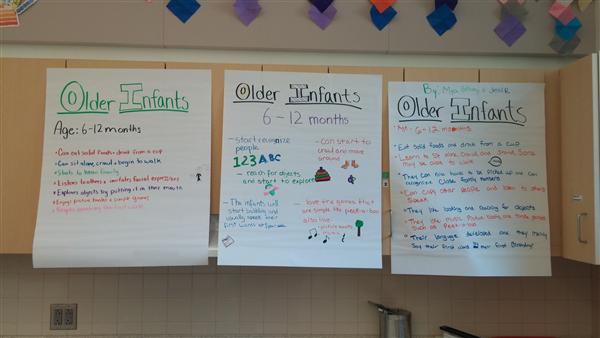 Older Infants
Age: 6-12 months
Can eat solid foods + drink from a cup
Can sit alone, crawl + begin to walk
Starts to
Listens to others + imitates facial expressions
Explores objects by putting it in their mouth
Enjoys picture books + simple games
Older Infants
6-12 months
- start recognize
people
123 ABC
- reach for objects
and start to explore
- The infants will
start babbling and
usually speak their
first words at
- can start to
crawl and move
around
- love the games that
are simple like peek-a-boo
also like:
- picture books
- music
By: Mya
Older Infants
6-12 months
Eat solid foods and drink from a cup
Learn to sit alone, crawl and stand. Some
may be able to walk
They can now have to be picked up and can
recognize close family members
Can copy other people and listen to others
speak
They like looking and reaching for objects
They like music, picture books and simple games
such as Peek-a-boo
Their language developed and they mainly
say their first word their first birthday!